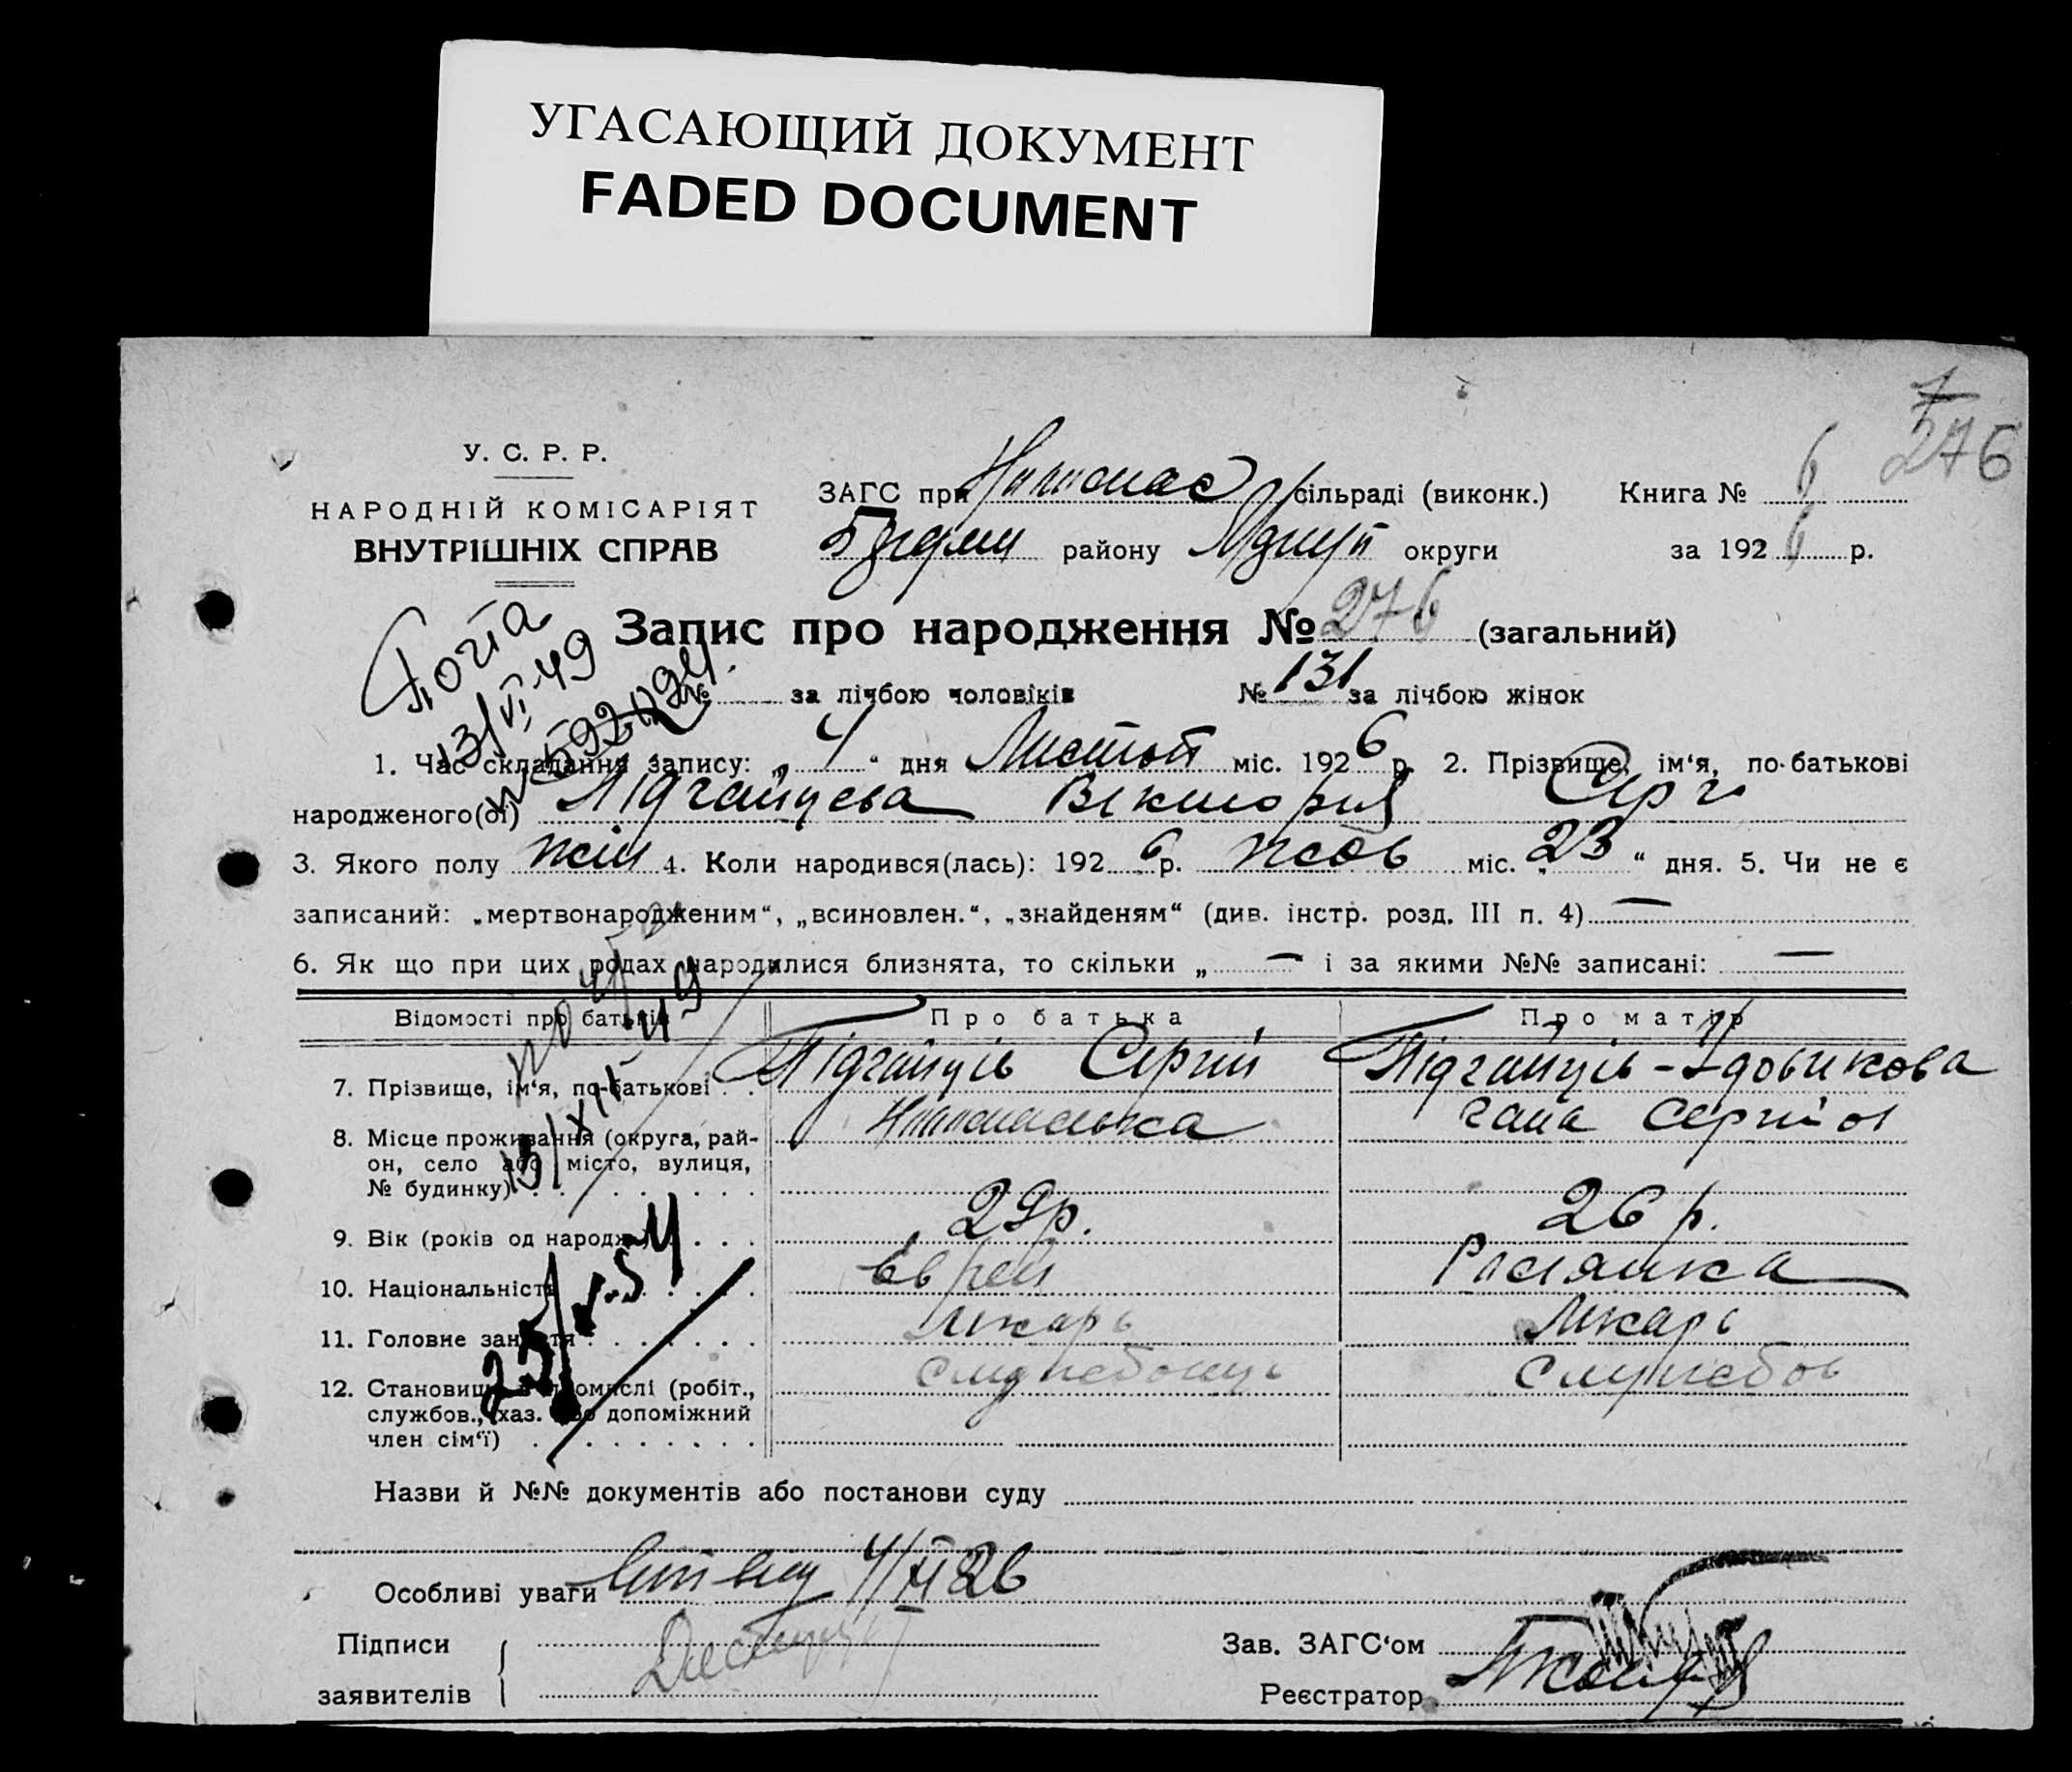 УГАСАЮЩИЙ ДОКУМЕНТ
FADED DOCUMENT
276
У. С. Р. Р.
НАРОДНІЙ КОМІСАРІЯТ
ВНУТРІШНІХ СПРАВ
ЗАГС при сільраді (виконк.) Книга № 6
району округи за 1926 р.
Запис про народження № 276 (загальний)
№ за лічбою чоловіків № 131 за лічбою жінок
1. Час складання запису: „4“ дня Листоп міс. 1926 р. 2. Прізвище, ім‘я, по-батькові
народженого(ої) Підгайцева Вікторія Серг
3. Якого полу жін 4. Коли народився(лась): 1926 р. жов міс. „23“ дня. 5. Чи не є
записаний: „мертвонародженим“, „всиновлен.“, „знайденям“ (див. інстр. розд. III п. 4) —
6. Як що при цих родах народилися близнята, то скільки „ — і за якими №№ записані: —
Відомості про батьків Про батька Про матір
7. Прізвище, ім‘я, по-батькові Підгайців Сергій Підгайців-Удовикова
8. Місце проживання (округа, рай- Сергійов
он, село або місто, вулиця,
№ будинку)
9. Вік (років од народж.) 29р. 26 р.
10. Національність Єврей Росіянка
11. Головне заняття Лікарь Лікарь
12. Становище в промислі (робіт., службовець службов
службов., хаз. або допоміжний
член сім‘ї)
Назви й №№ документів або постанови суду
Особливі уваги 4/XI 26
Підписи Зав. ЗАГС‘ом
заявителів Реєстратор
13/VI-49